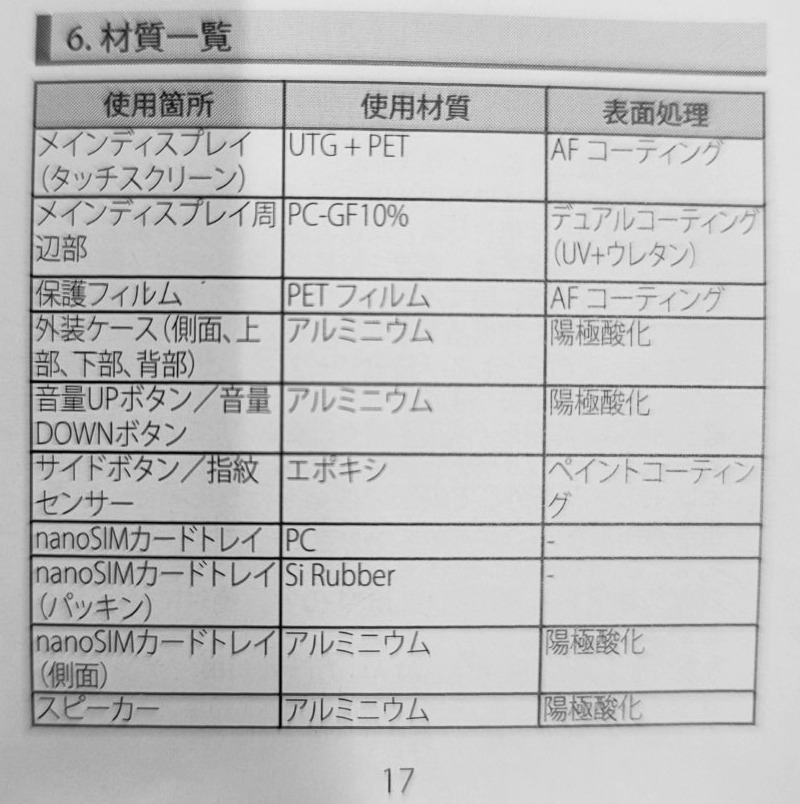 6. 材質一覧
使用箇所 使用材質 表面処理
メインディスプレイ UTG + PET AF コーティング
（タッチスクリーン）
メインディスプレイ周 PC-GF10% デュアルコーティング
辺部 （UV+ウレタン）
保護フィルム PET フィルム AF コーティング
外装ケース（側面、上 アルミニウム 陽極酸化
部、下部、背部）
音量UPボタン／音量 アルミニウム 陽極酸化
DOWNボタン
サイドボタン／指紋 エポキシ ペイントコーティン
センサー グ
nanoSIMカードトレイ PC -
nanoSIMカードトレイ Si Rubber -
（パッキン）
nanoSIMカードトレイ アルミニウム 陽極酸化
（側面）
スピーカー アルミニウム 陽極酸化
17